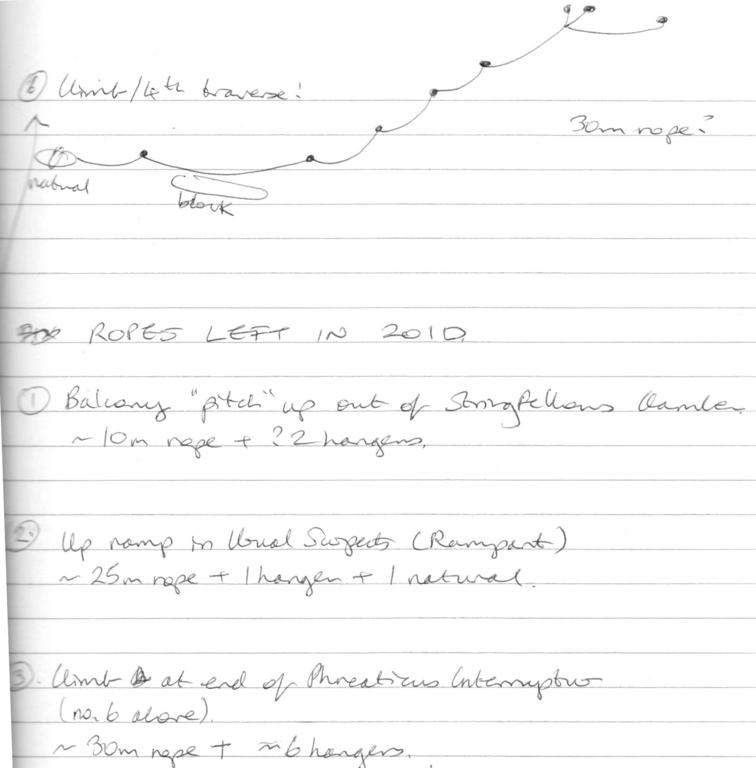 ⑥ Climb/4th traverse!
30m rope?
natural
block
ROPES LEFT IN 2010.
① Balcony "pitch" up out of Stringfellows Chamber.
~10m rope + ?2 hangers.
②. Up ramp in Usual Suspects (Rampant)
~ 25m rope + 1 hanger + 1 natural.
③. Climb at end of Phreaticus Interruptus
(no. 6 above).
~ 30m rope + ~6 hangers.